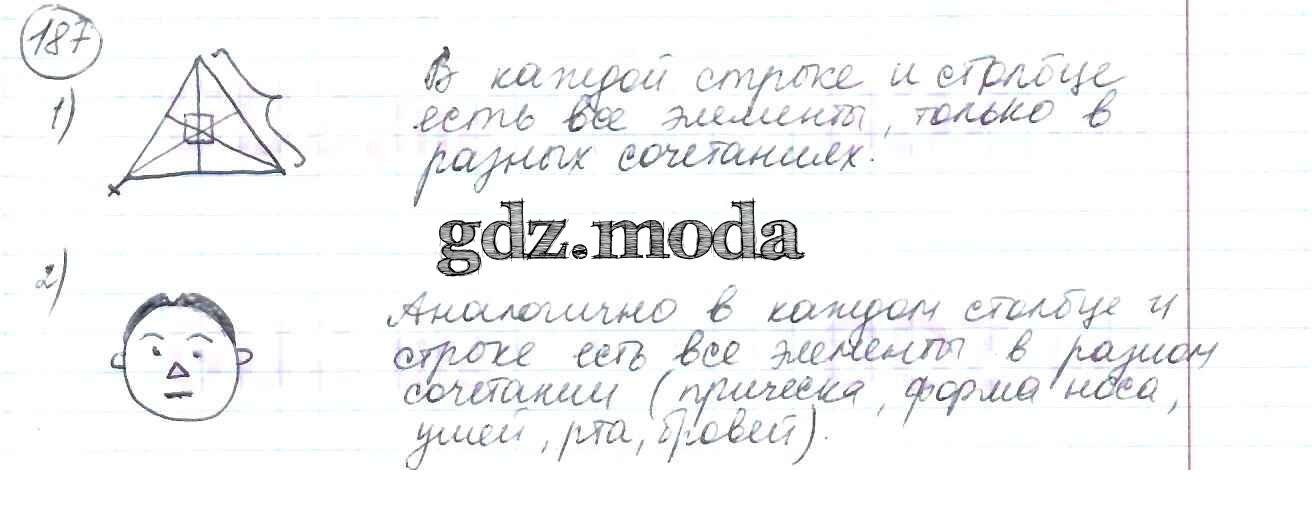 187
1)
В каждой строке и столбце
есть все элементы, только в
разных сочетаниях.
gdz.moda
2)
Аналогично в каждом столбце и
строке есть все элементы в разном
сочетании (прическа, форма носа,
ушей, рта, бровей).